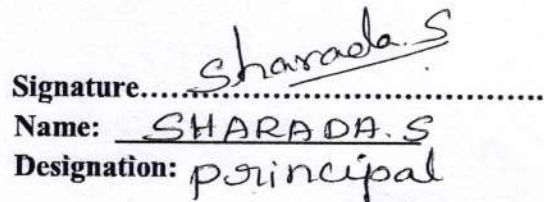 Signature.....Sharada.S.....
Name: SHARADA.S
Designation: principal